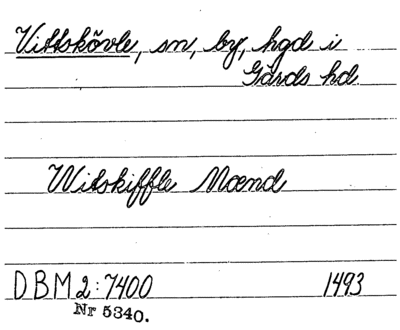 Vittskövle, sn, by, hgd i
Gärds hd
Witskiffle Mænd
DBM 2:7400 1493
Nr 5340.